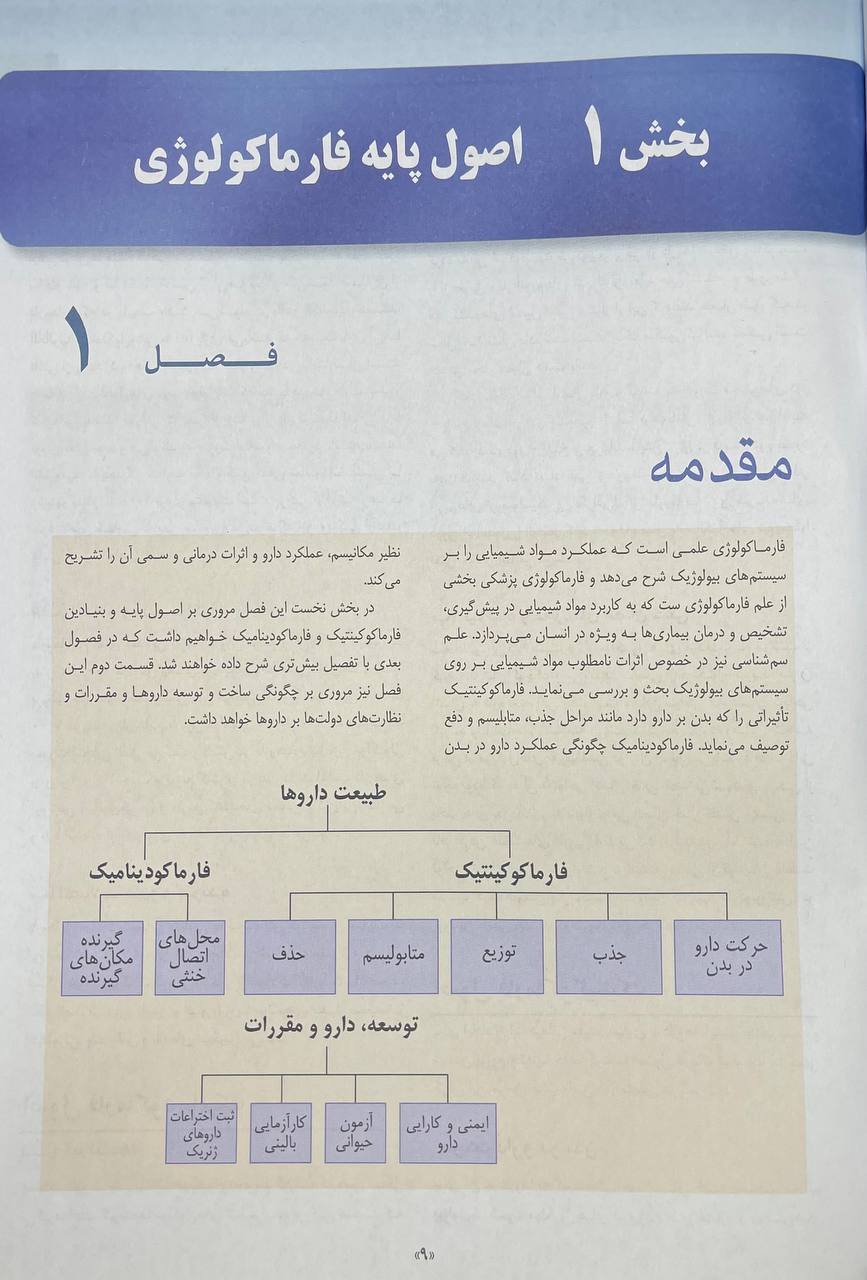 بخش ۱ اصول پایه فارماکولوژی
فصل ۱
مقدمه
فارماکولوژی علمی است که عملکرد مواد شیمیایی را بر
سیستم‌های بیولوژیک شرح می‌دهد و فارماکولوژی پزشکی بخشی
از علم فارماکولوژی ست که به کاربرد مواد شیمیایی در پیش‌گیری،
تشخیص و درمان بیماری‌ها به ویژه در انسان می‌پردازد. علم
سم‌شناسی نیز در خصوص اثرات نامطلوب مواد شیمیایی بر روی
سیستم‌های بیولوژیک بحث و بررسی می‌نماید. فارماکوکینتیک
تأثیراتی را که بدن بر دارو دارد مانند مراحل جذب، متابلیسم و دفع
توصیف می‌نماید. فارماکودینامیک چگونگی عملکرد دارو در بدن
نظیر مکانیسم، عملکرد دارو و اثرات درمانی و سمی آن را تشریح
می‌کند.
در بخش نخست این فصل مروری بر اصول پایه و بنیادین
فارماکوکینتیک و فارماکودینامیک خواهیم داشت که در فصول
بعدی با تفصیل بیش‌تری شرح داده خواهند شد. قسمت دوم این
فصل نیز مروری بر چگونگی ساخت و توسعه داروها و مقررات و
نظارت‌های دولت‌ها بر داروها خواهد داشت.
طبیعت داروها
فارماکوکینتیک
فارماکودینامیک
حرکت دارو
در بدن
جذب
توزیع
متابولیسم
حذف
محل‌های
اتصال
خنثی
گیرنده
مکان‌های
گیرنده
توسعه، دارو و مقررات
ایمنی و کارایی
دارو
آزمون
حیوانی
کارآزمایی
بالینی
ثبت اختراعات
داروهای
ژنریک
«۹»